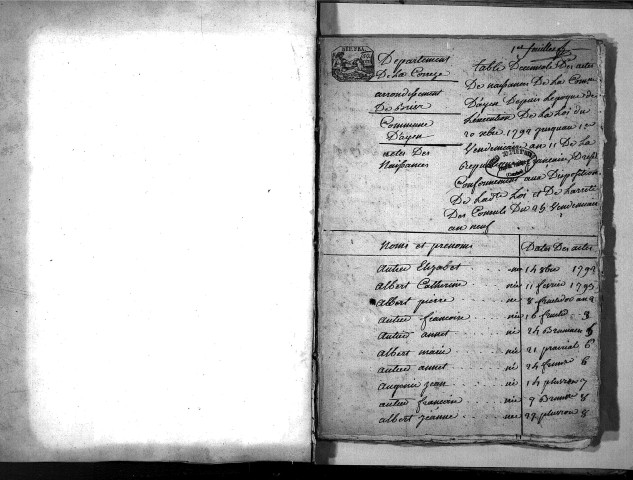 1er feuillet
Departement
De La Correze
arrondissement
De Brive
Commune
D'ayen
actes Des
Naissances
table Decennale Des actes
De naissances De La Commune
D'ayen Depuis Lepoque de
Lexecution De La Loi du
20 xbre 1792 jusquau 1er
Vendemiaire an 11 De La
Republique francaise Dressé
Conformement aux Disposition
De Ladte Loi et De Larreté
Des Consuls Du 25 Vendemiaire
an neuf
Noms et prenoms Dates Des actes
autier Elizabet née 14 xbre 1792
albert Catherine née 11 fevrier 1793
albert pierre né 8 fructidor an 2
autier francoise née 16 fruct 3
autier annet né 24 Brumaire 6
albert marie née 21 prairial 6
autier annet né 24 6
jean né 14 pluviose 7
autier francois né 9 Brumre 8
albert jeanne née 27 pluviose 8